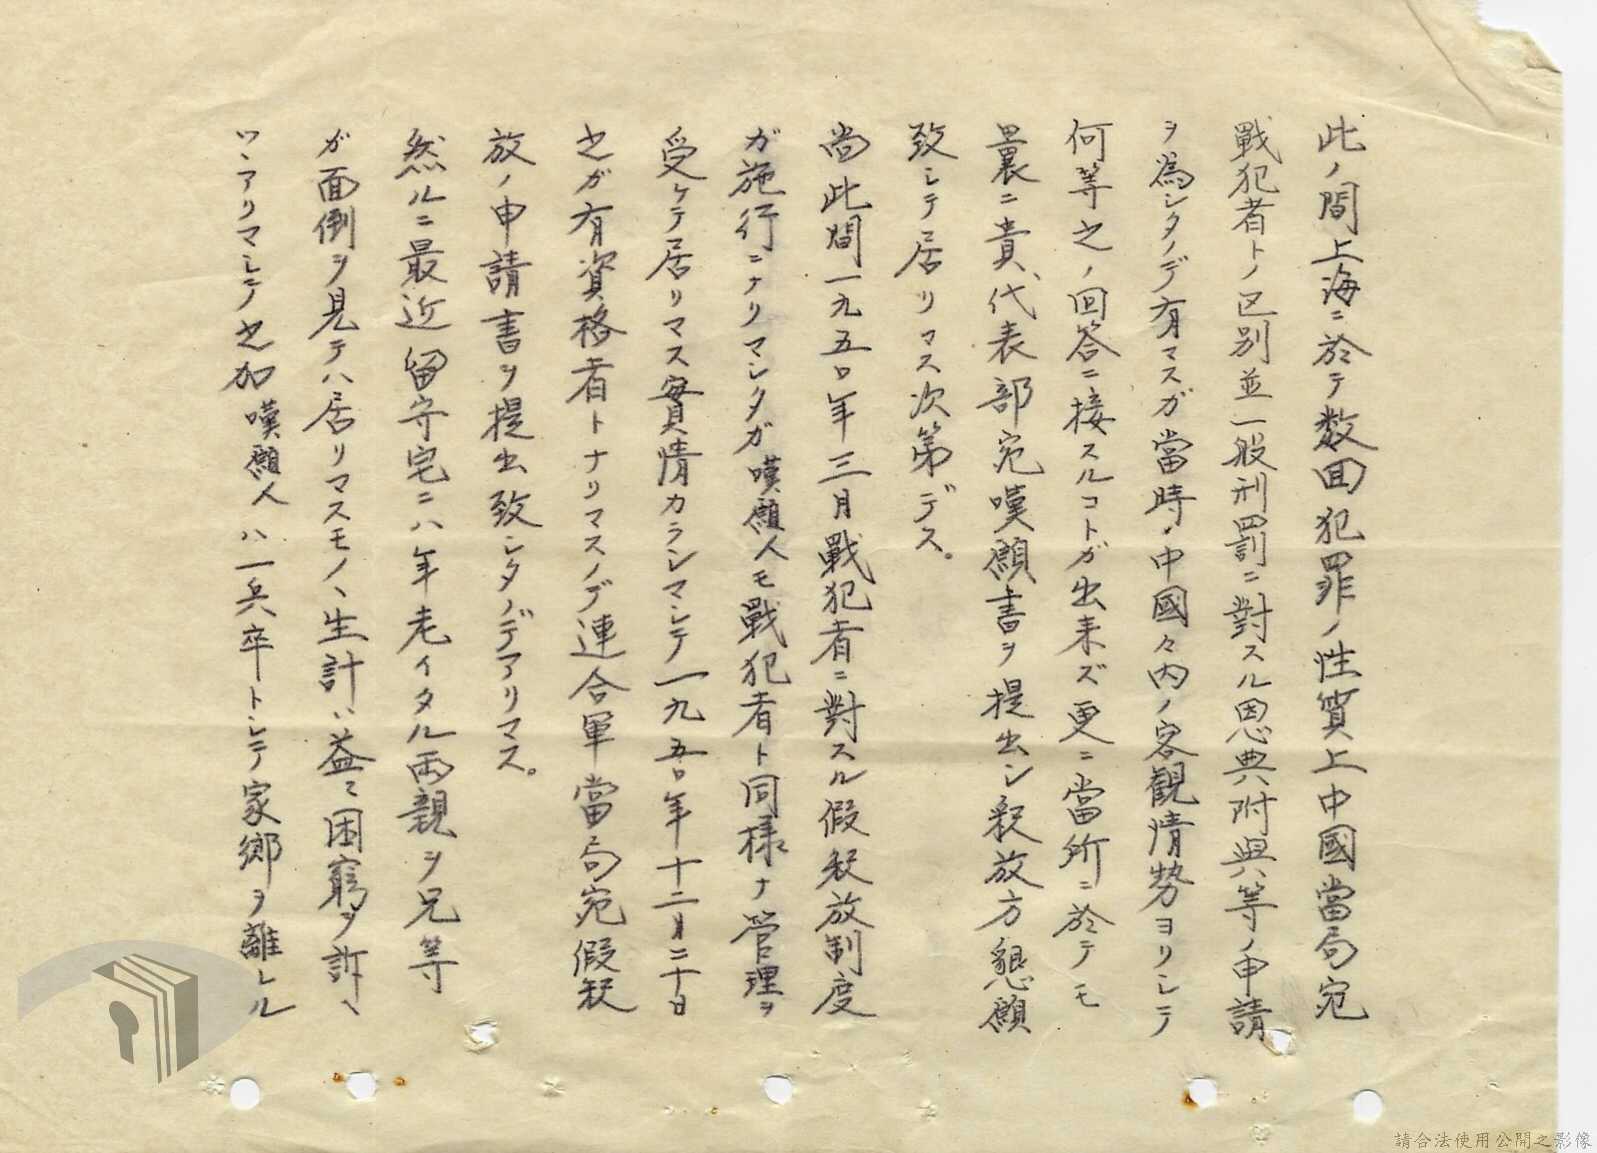 此ノ間上海ニ於テ数回犯罪ノ性質上中國當局宛
戰犯者トノ区別並一般刑罰ニ對スル恩典附與等ノ申請
ヲ為シタノデ有マスガ當時、中國々内ノ客観情势ヨリシテ
何等之ノ回答ニ接スルコトガ出来ズ更ニ當所ニ於テモ
曩ニ貴代表部宛嘆願書ヲ提出シ釈放方懇願
致シテ居リマス次第デス。
尚此間一九五〇年三月戰犯者ニ對スル假釈放制度
ガ施行ニナリマシタガ嘆願人モ戰犯者ト同様ナ管理ヲ
受ケテ居リマス實情カラシマシテ一九五〇年十二月二十日
之ガ有資格者トナリマスノデ連合軍當局宛假釈
放ノ申請書ヲ提出致シタノデアリマス。
然ルニ最近留守宅ニハ年老イタル両親ヲ兄等
ガ面倒ヲ見テハ居リマスモノヽ生計ハ益々困窮ヲ訴ヘ
ツヽアリマシテ之加嘆願人ハ一兵卒トシテ家鄉ヲ離レル
請合法使用公開之影像